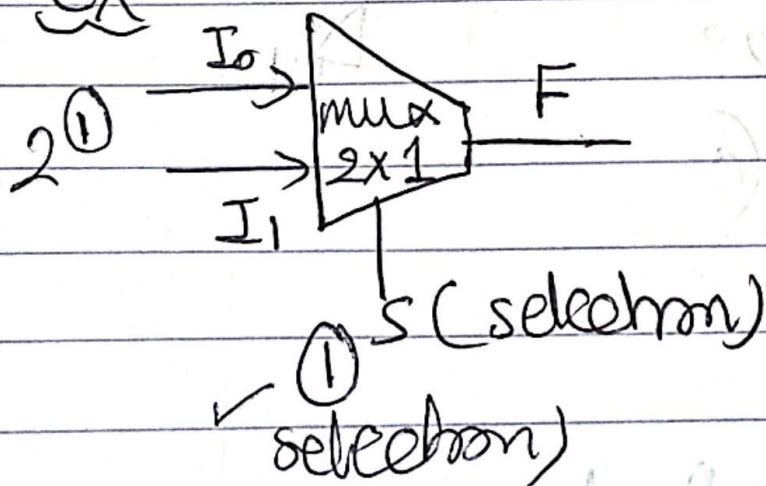 Ex
I₀
2①
mux
2x1
F
I₁
S (selection)
①
✓ selection)